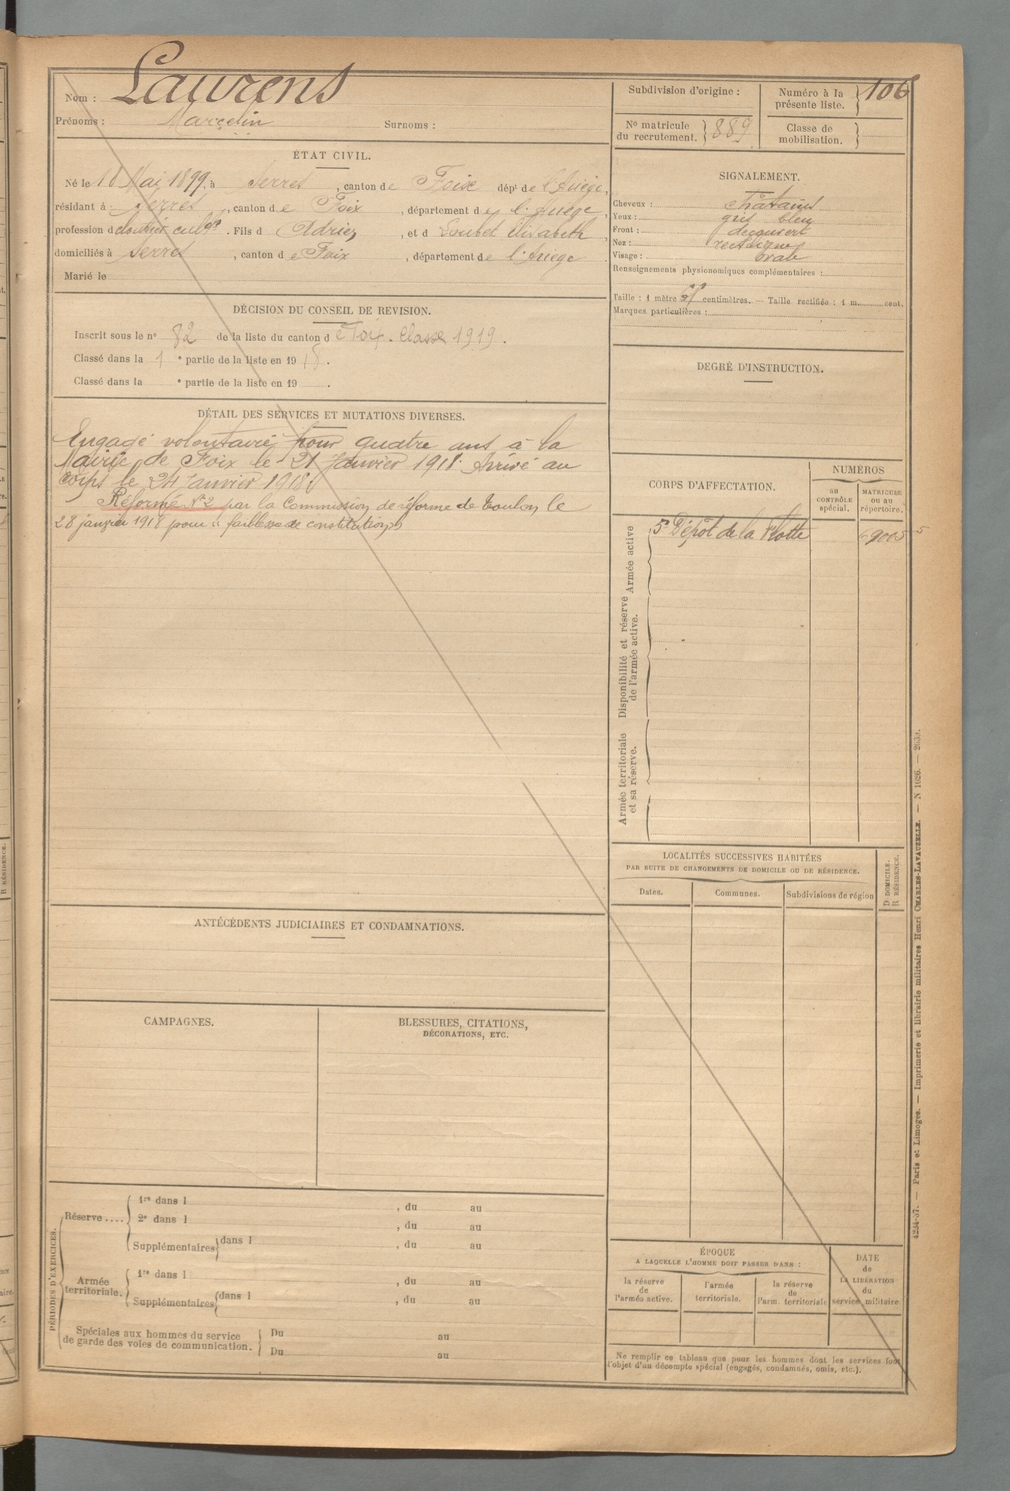 Nom : Laurens
Prénoms : Marcelin Surnoms :
ÉTAT CIVIL.
Né le 10 Mai 1899, à Serres, canton de Foix dépt de l'Ariège,
résidant à Serres, canton de Foix, département de l'Ariège,
profession de ouvrier cultr. Fils d Adrien, et d Soubet Elisabeth,
domiciliés à Serres, canton de Foix, département de l'Ariège
Marié le
DÉCISION DU CONSEIL DE REVISION.
Inscrit sous le n° 82 de la liste du canton de Foix. Classe 1919.
Classé dans la 1e partie de la liste en 1918.
Classé dans la e partie de la liste en 19 .
DÉTAIL DES SERVICES ET MUTATIONS DIVERSES.
Engagé volontaire pour quatre ans à la
Mairie de Foix le 21 Janvier 1918. Arrivé au
corps le 24 Janvier 1918.
Réformé N°2 par la Commission de réforme de Toulon le
28 janvier 1918 pour « faiblesse de constitution »
ANTÉCÉDENTS JUDICIAIRES ET CONDAMNATIONS.
CAMPAGNES.
BLESSURES, CITATIONS,
DÉCORATIONS, ETC.
PÉRIODES D'EXERCICES.
Réserve ....
1re dans l , du au
2e dans l , du au
Supplémentaires dans l , du au
Armée
territoriale.
1re dans l , du au
Supplémentaires dans l , du au
Spéciales aux hommes du service
de garde des voies de communication.
Du au
Du au
Subdivision d'origine :
Numéro à la
présente liste. 106
N° matricule
du recrutement. 889
Classe de
mobilisation.
SIGNALEMENT.
Cheveux : châtains
Yeux : gris bleu
Front : découvert
Nez : rectiligne
Visage : ovale
Renseignements physionomiques complémentaires :
Taille : 1 mètre 57 centimètres. — Taille rectifiée : 1 m. cent.
Marques particulières :
DEGRÉ D'INSTRUCTION.
CORPS D'AFFECTATION.
NUMÉROS
au
CONTRÔLE
spécial.
MATRICULE
ou au
répertoire.
Armée active
5e Dépôt de la Flotte
Disponibilité et réserve
de l'armée active.
Armée territoriale
et sa réserve.
LOCALITÉS SUCCESSIVES HABITÉES
PAR SUITE DE CHANGEMENTS DE DOMICILE OU DE RÉSIDENCE.
D. DOMICILE.
R. RÉSIDENCE.
Dates. Communes. Subdivisions de région
ÉPOQUE
A LAQUELLE L'HOMME DOIT PASSER DANS :
DATE
de
LA LIBÉRATION
du
service militaire
la réserve
de
l'armée active.
l'armée
territoriale.
la réserve
de
l'arm. territoriale
Ne remplir ce tableau que pour les hommes dont les services font
l'objet d'un décompte spécial (engagés, condamnés, omis, etc.).
4234-37. — Paris et Limoges. — Imprimerie et librairie militaires Henri CHARLES-LAVAUZELLE. — N 1026.
R RÉSIDENCE.